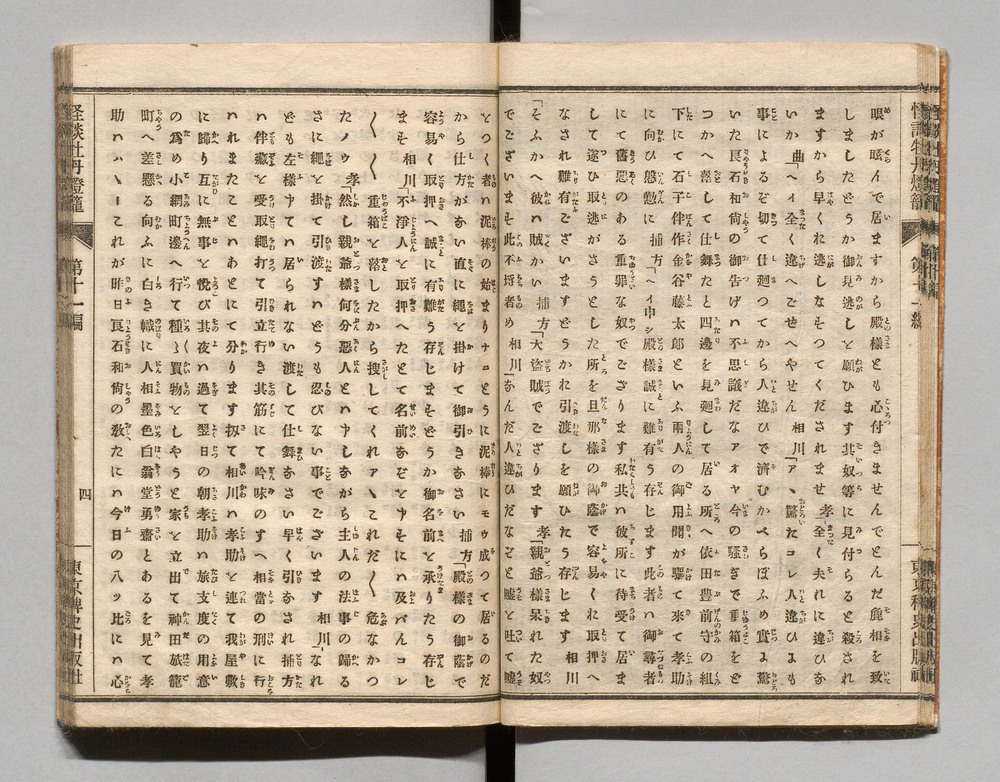 眼が眩んで居ますから殿様とも心付きませんでとんだ麁相を致
しましたどうか御見逃しを願ひます其奴等に見付らると殺され
ますから早くお逃しなすつてくだされませ 孝「全く夫れに違ひな
いか 曲「ヘイ全く違へごせへやせん 相川「アヽ驚たコレ人違ひにも
事によるぞ切て仕廻つてから人違ひで濟むかべらぼふめ實に驚
いた良石和尚の御告げハ不思議だなアオヤ今の騒ぎで重箱をど
つかへ落して仕舞たと四邊を見廻して居る所へ依田豊前守の組
下にて石子伴作金谷藤太郎といふ兩人の御用聞が驅て來て孝助
に向ひ慇懃に 捕方「ヘイ申シ殿様誠に難有う存じます此者ハ御尋者
にて舊惡のある重罪な奴でござります私共ハ彼所に待受て居ま
して遂ひ取逃がさうとした所を旦那様の御蔭で容易くお取押へ
なされ難有ございますどうかお引渡しを願ひたう存じます 相川
「そふかへ彼ハ賊かい 捕方「大盗賊でござります 孝「親爺様呆れた奴
でございます此不埒者め 相川「なんだ人違ひだなどと嘘を吐て嘘
をつく者ハ泥棒の始まりナニとうに泥棒にモウ成つて居るのだ
から仕方がない直に繩を掛けて御引きなさい 捕方「殿様の御蔭で
容易く取押へ誠に有難う存じますどうか御名前を承りたう存じ
ます 相川「不淨人を取押へたとて名前なぞを申すにハ及バんコレ
〳〵〳〵重箱を落したから捜してくれアヽこれだ〳〵危なかつ
たノウ 孝「然し親爺様何分惡人とハ申しながら主人の法事の歸る
さに繩を掛て引渡すハどうも忍びない事でございます 相川「なれ
ども左様申てハ居られない渡して仕舞なさい早く引きなされ捕方
ハ伴藏を受取繩打て引立行き其筋にて吟味のすへ相當の刑に行
ハれましたことハあとにて分ります扨て相川ハ孝助を連て我屋敷
に歸り互に無事を悦び其夜ハ過て翌日の朝孝助ハ旅支度の用意
の爲め小網町邊へ行て種〻買物をしやうと家を立出て神田旅籠
町へ差懸る向ふに白き幟に人相墨色白翁堂勇齋とあるを見て孝
助ハハヽーこれが昨日良石和尚の敎たにハ今日の八ッ比にハ必
怪談牡丹燈籠 第十一編
四
東京稗史出版社